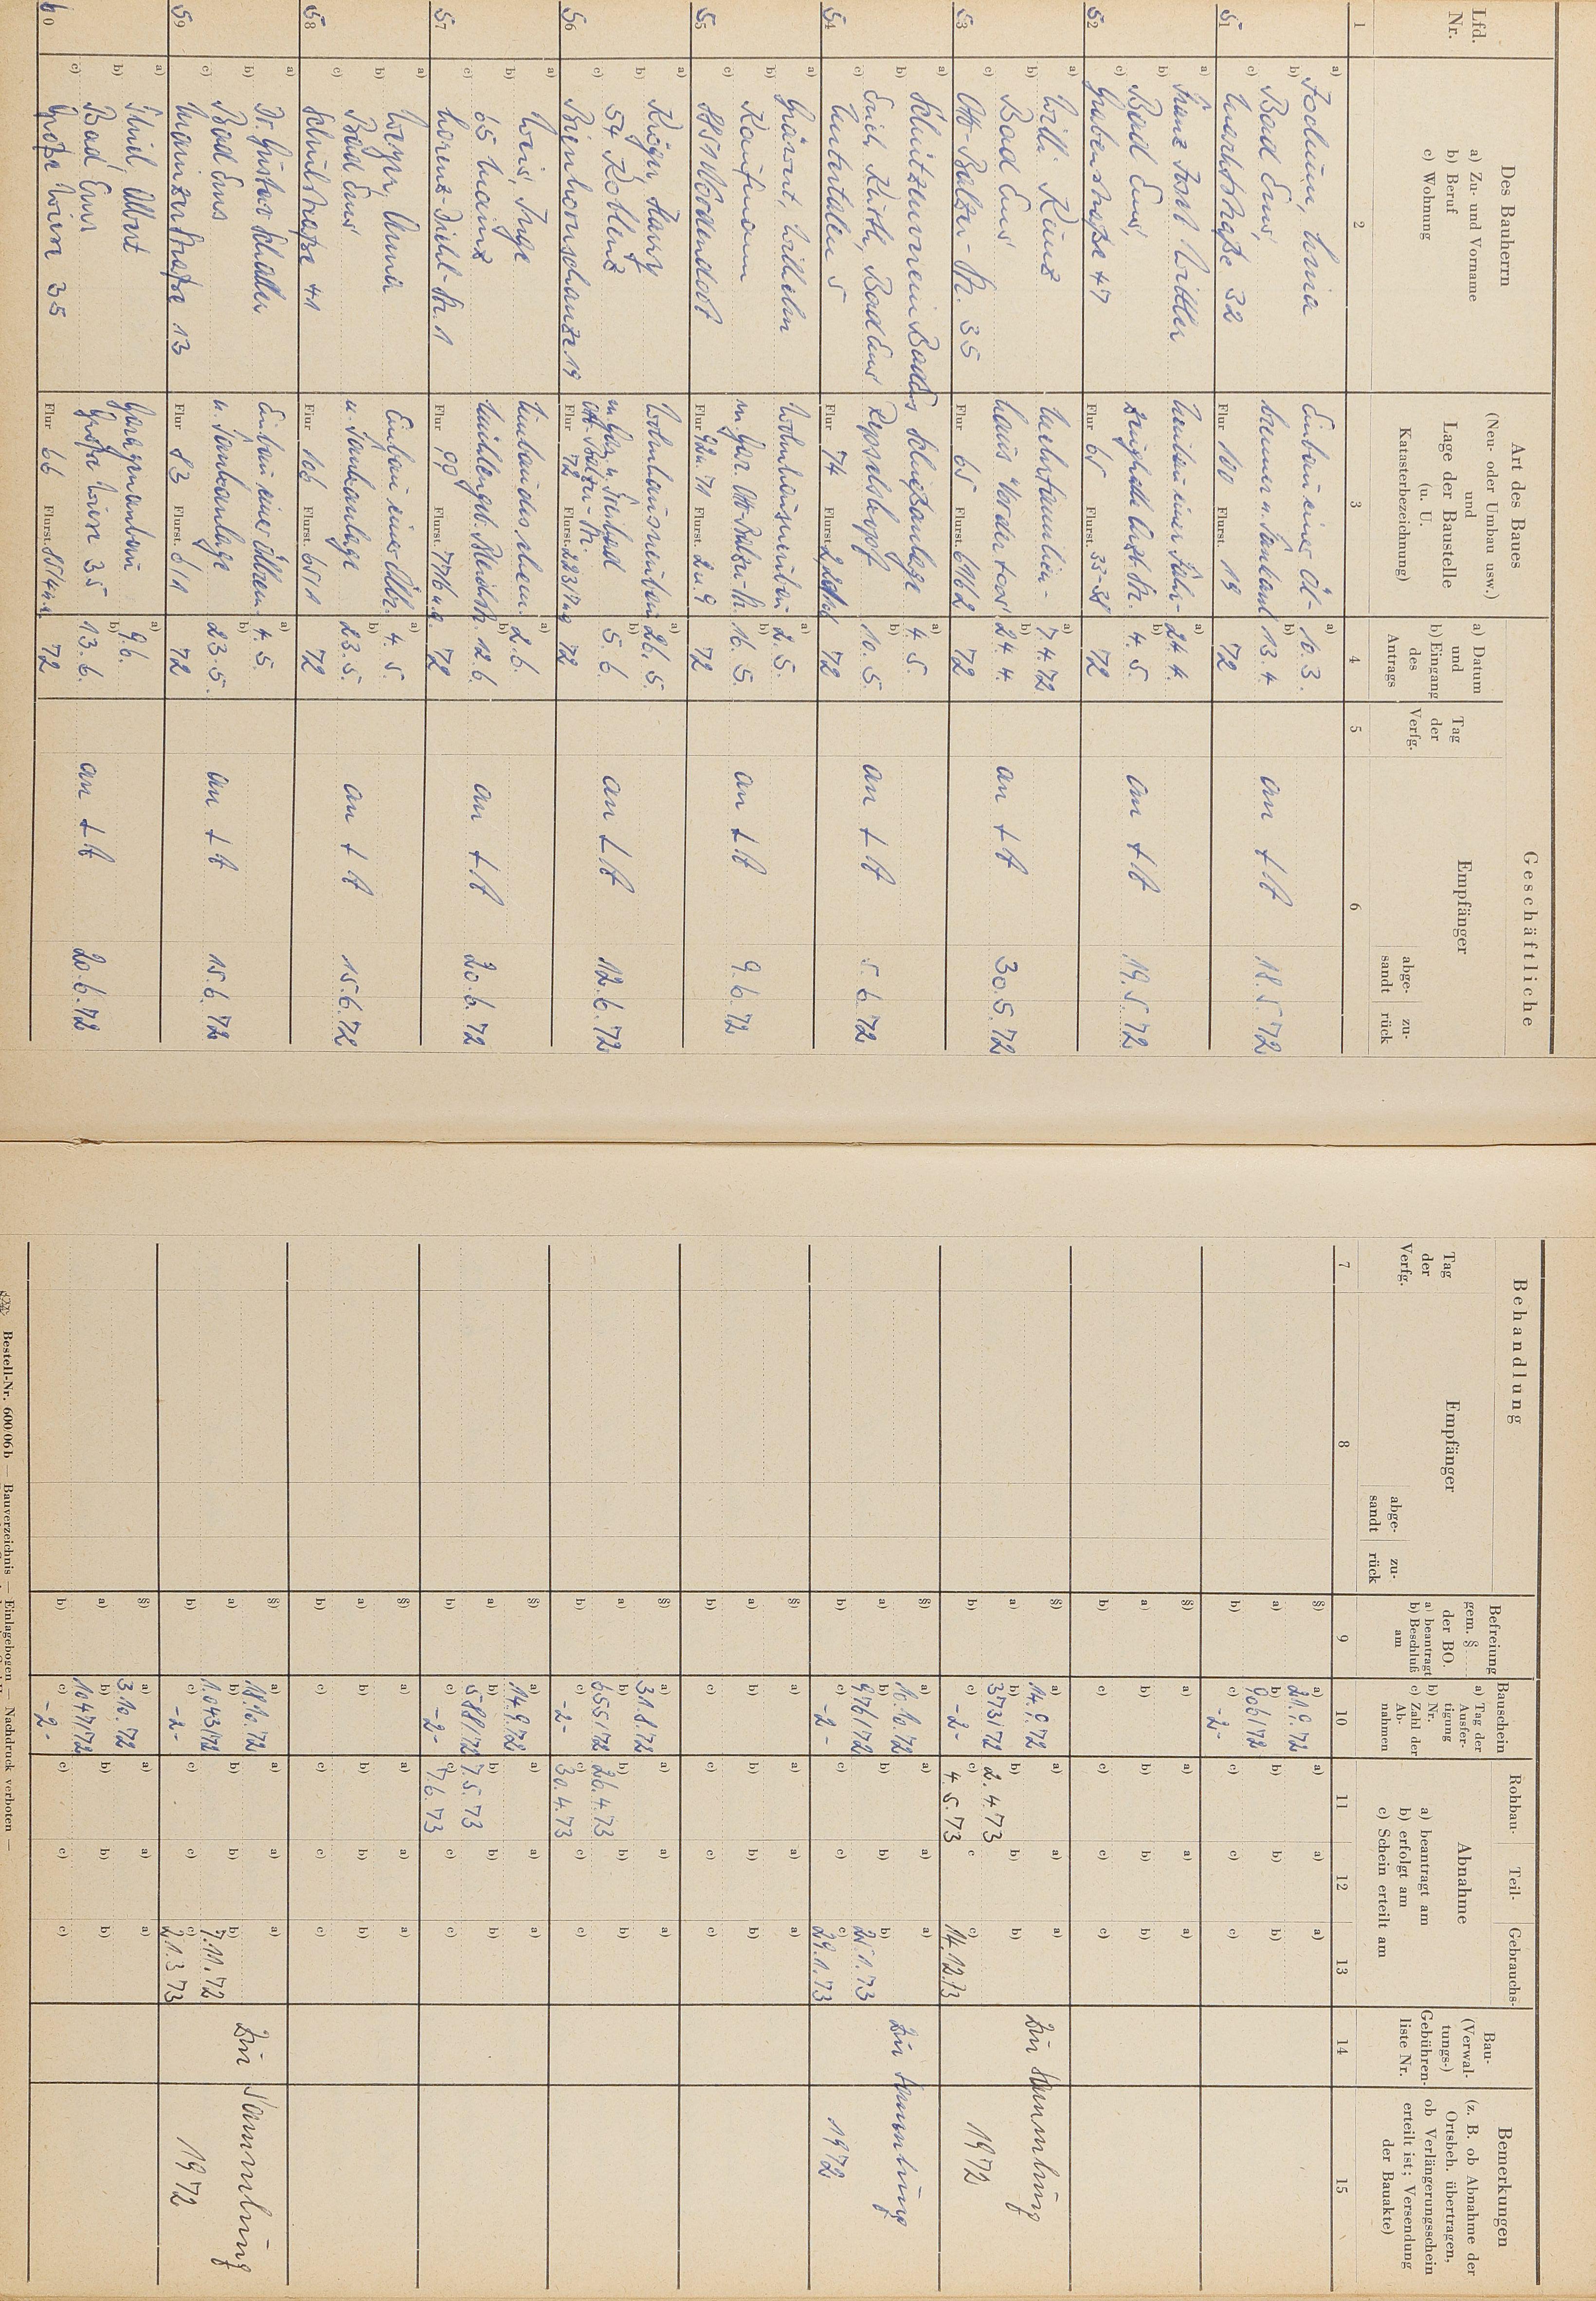 Geschäftliche
Lfd.
Nr.
Des Bauherrn
a) Zu- und Vorname
b) Beruf
c) Wohnung
Art des Baues
(Neu- oder Umbau usw.)
und
Lage der Baustelle
(u. U.
Katasterbezeichnung)
a) Datum
und
b) Eingang
des
Antrags
Tag
der
Verfg.
Empfänger
abge-
sandt
zu-
rück
1 2 3 4 5 6
51
a)
b) Bad Ems,
c) Marktstraße 32
Einbau eines Öl-
brenner u. Tankanl.
Flur 100 Flurst. 19
a) 10.3.
b) 13.4
72
an + A
18.5.72
52
a) Franz Josef
b) Bad Ems,
c) Grabenstraße 47
Neubau einer Fahr-
Flur 65 Flurst. 33-38
a) 24.4.
b) 4.5.
72
an + A
19.5.72
53
a) Willi Kunz
b) Bad Ems
c) Otto-Balzer-Str. 35
Mehrfamilien-
haus
Flur 65 Flurst.
a) 7.4.72
b) 24.4.
72
an + A
30.5.72
54
a) Schützenverein Bad Ems
b) Bad Ems
c) Unterallee 5
Schießanlage
Flur 74 Flurst.
a) 4.5.
b) 10.5.
72
an + A
5.6.72
55
a) Wilhelm
b) Kaufmann
c)
Wohnhausneubau
m. Gar. Otto-Balzer-Str.
Flur Flurst. 2 u. 9
a) 2.5.
b) 16.5.
72
an + A
9.6.72
56
a) Krüger, Harry
b) 54 Koblenz
c) Bienhornschanze 19
Wohnhausneubau
Otto-Balzer-Str.
Flur 72 Flurst.
a) 26.5.
b) 5.6.
72
an + A
12.6.72
57
a) Inge
b) 65 Mainz
c) Lorenz-Diehl-Str. 1
Umbau des ehem.
Flur 99 Flurst.
a) 2.6.
b) 12.6.
72
an + A
20.6.72
58
a)
b) Bad Ems
c) Schulstraße 41
Einbau einer Ölhz.
u. Tankanlage
Flur 106 Flurst. 65/1
a) 4.5.
b) 23.5.
72
an + A
15.6.72
59
a) Dr. Gustav Schaller
b) Bad Ems
c) Mainzer Straße 13
Einbau einer Ölbren.
u. Tankanlage
Flur 83 Flurst. 6/1
a) 4.5.
b) 23.5.
72
an + A
15.6.72
60
a) Albert
b) Bad Ems
c) Große Wiese 35
Garagenanbau
Große Wiese 35
Flur 66 Flurst.
a) 9.6.
b) 13.6.
72
an + A
20.6.72
Behandlung
Tag
der
Verfg.
Empfänger
abge-
sandt
zu-
rück
Befreiung
gem. §
der BO.
a) beantragt
b) Beschluß
am
Bauschein
a) Tag der
Ausfer-
tigung
b) Nr.
c) Zahl der
Ab-
nahmen
Rohbau- Teil- Gebrauchs-
Abnahme
a) beantragt am
b) erfolgt am
c) Schein erteilt am
Bau-
(Verwal-
tungs-)
Gebühren-
liste Nr.
Bemerkungen
(z. B. ob Abnahme der
Ortsbeh. übertragen,
ob Verlängerungsschein
erteilt ist; Versendung
der Bauakte)
7 8 9 10 11 12 13 14 15
a) 21.9.72
b) 906/72
c) -2-
a) 14.9.72
b) 373/72
c) -2-
b) 2.4.73
c) 4.5.73
c) 14.12.73
Zur Sammlung
1972
a) 10.10.72
b) 976/72
c) -2-
b) 25.1.73
c) 29.1.73
Zur Sammlung
1972
a) 31.8.72
b) 655/72
c) -2-
b) 26.4.73
c) 30.4.73
a) 14.9.72
b) 588/72
c) -2-
b) 7.5.73
c) 7.6.73
a) 18.10.72
b) 1.043/72
c) -2-
b) 7.11.72
c) 21.3.73
Zur Sammlung
1972
a) 3.10.72
b) 1047/72
c) -2-
Bestell-Nr. 600/06 b — Bauverzeichnis — Einlagebogen — Nachdruck verboten —